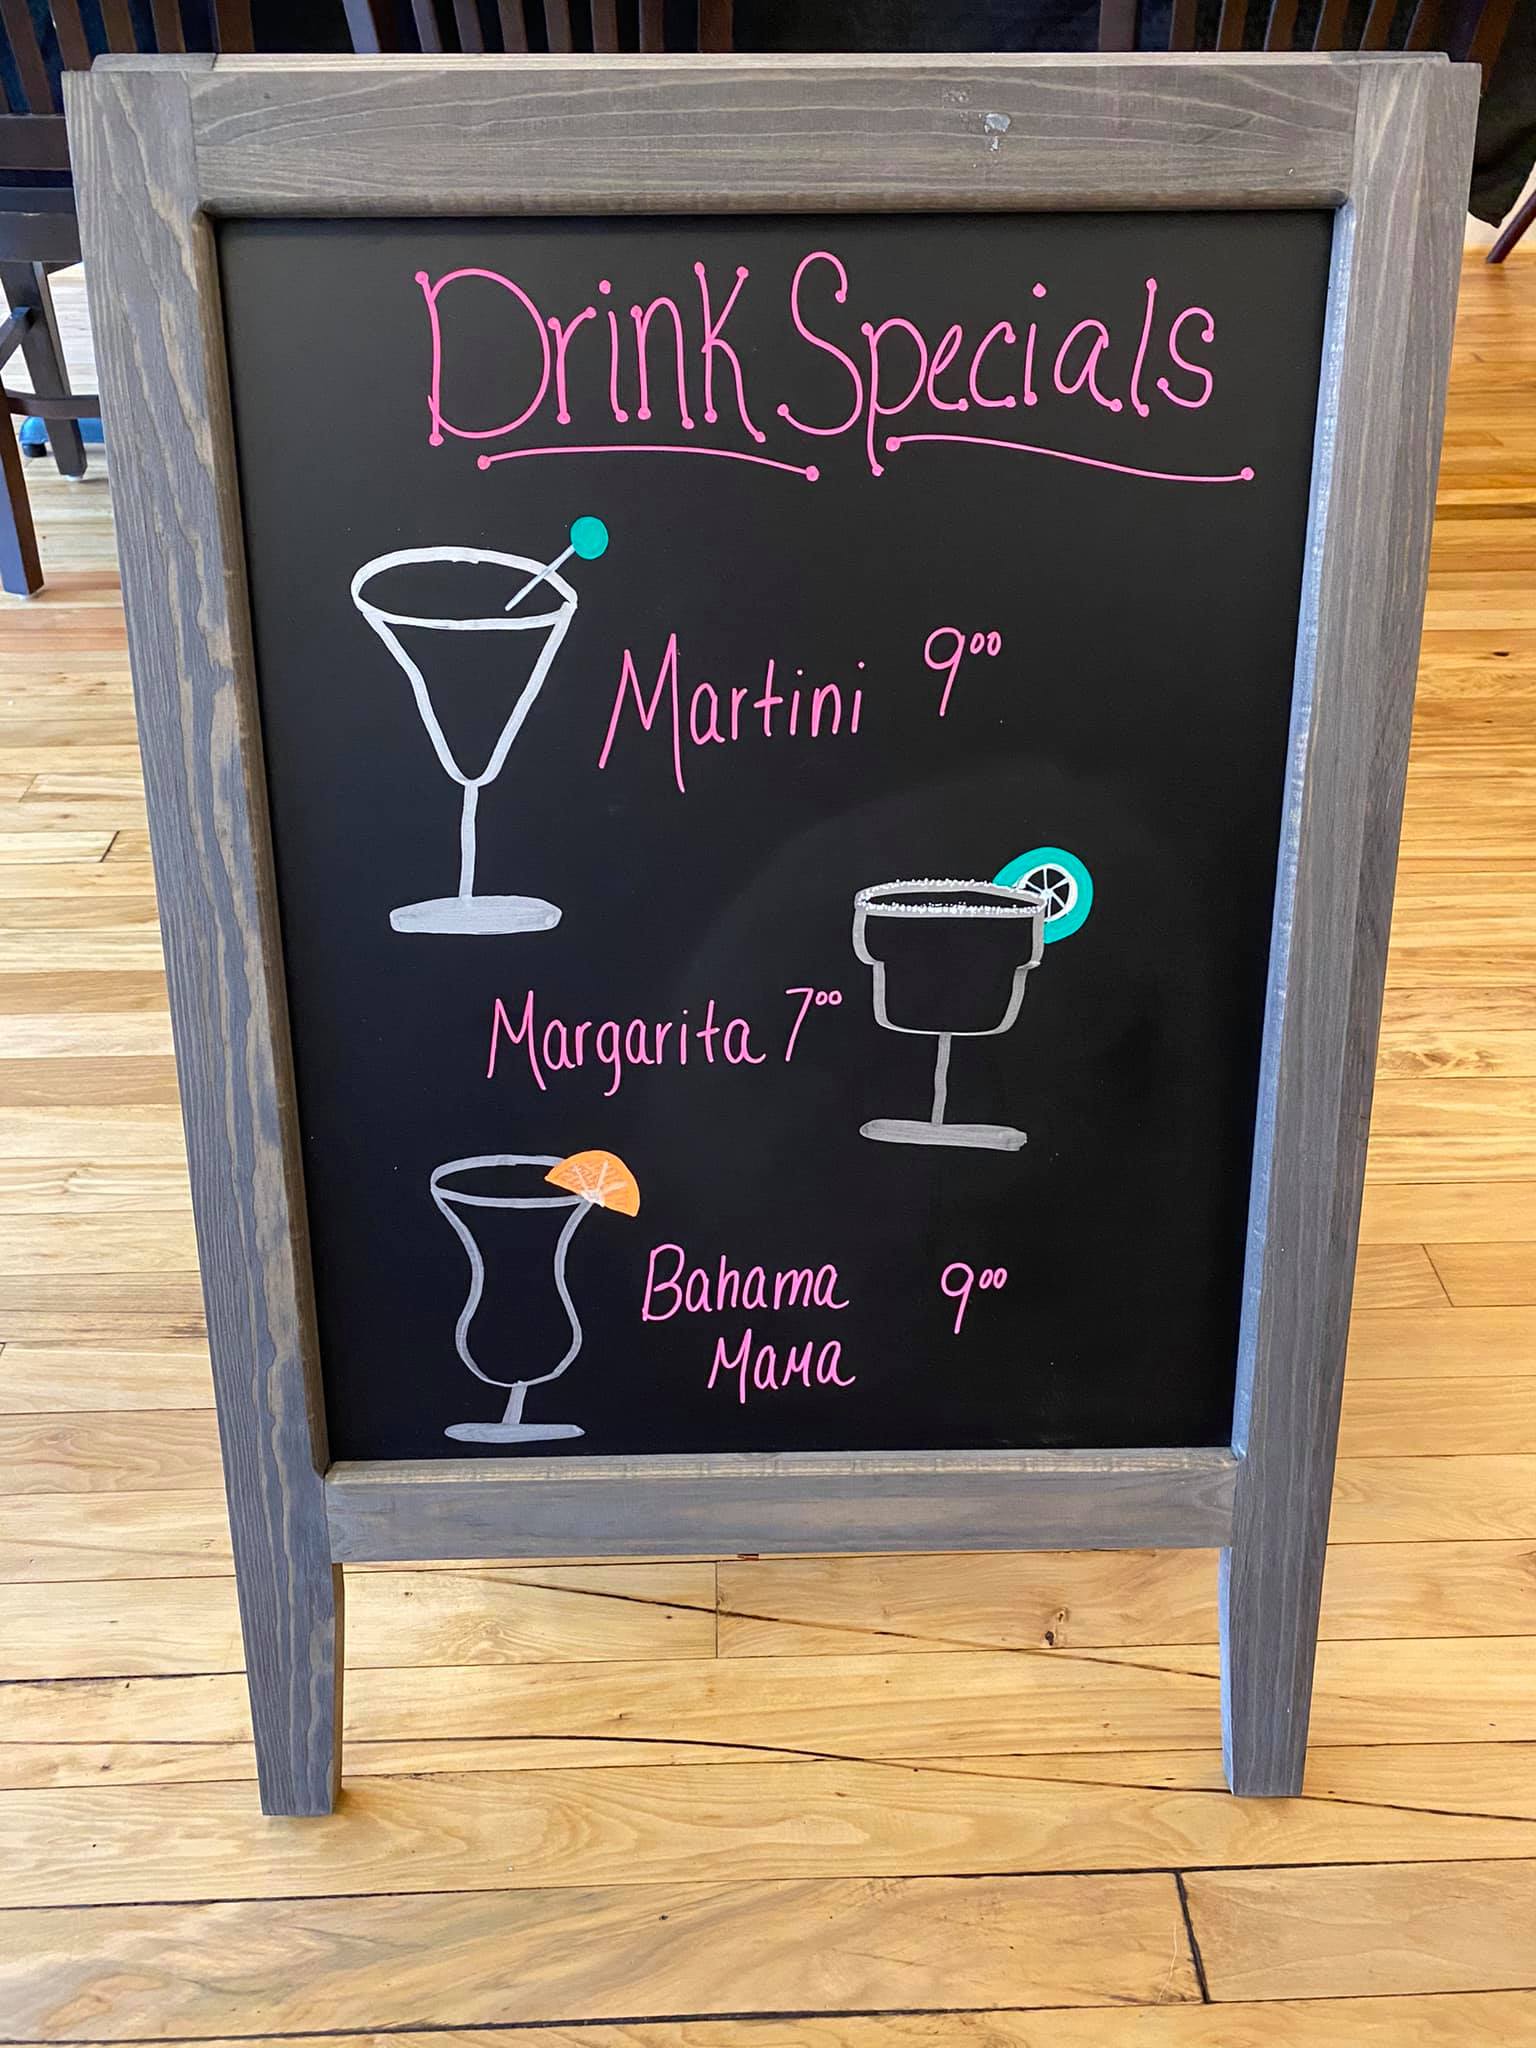 Drink Specials
Martini 9⁰⁰
Margarita 7⁰⁰
Bahama 9⁰⁰
Mama